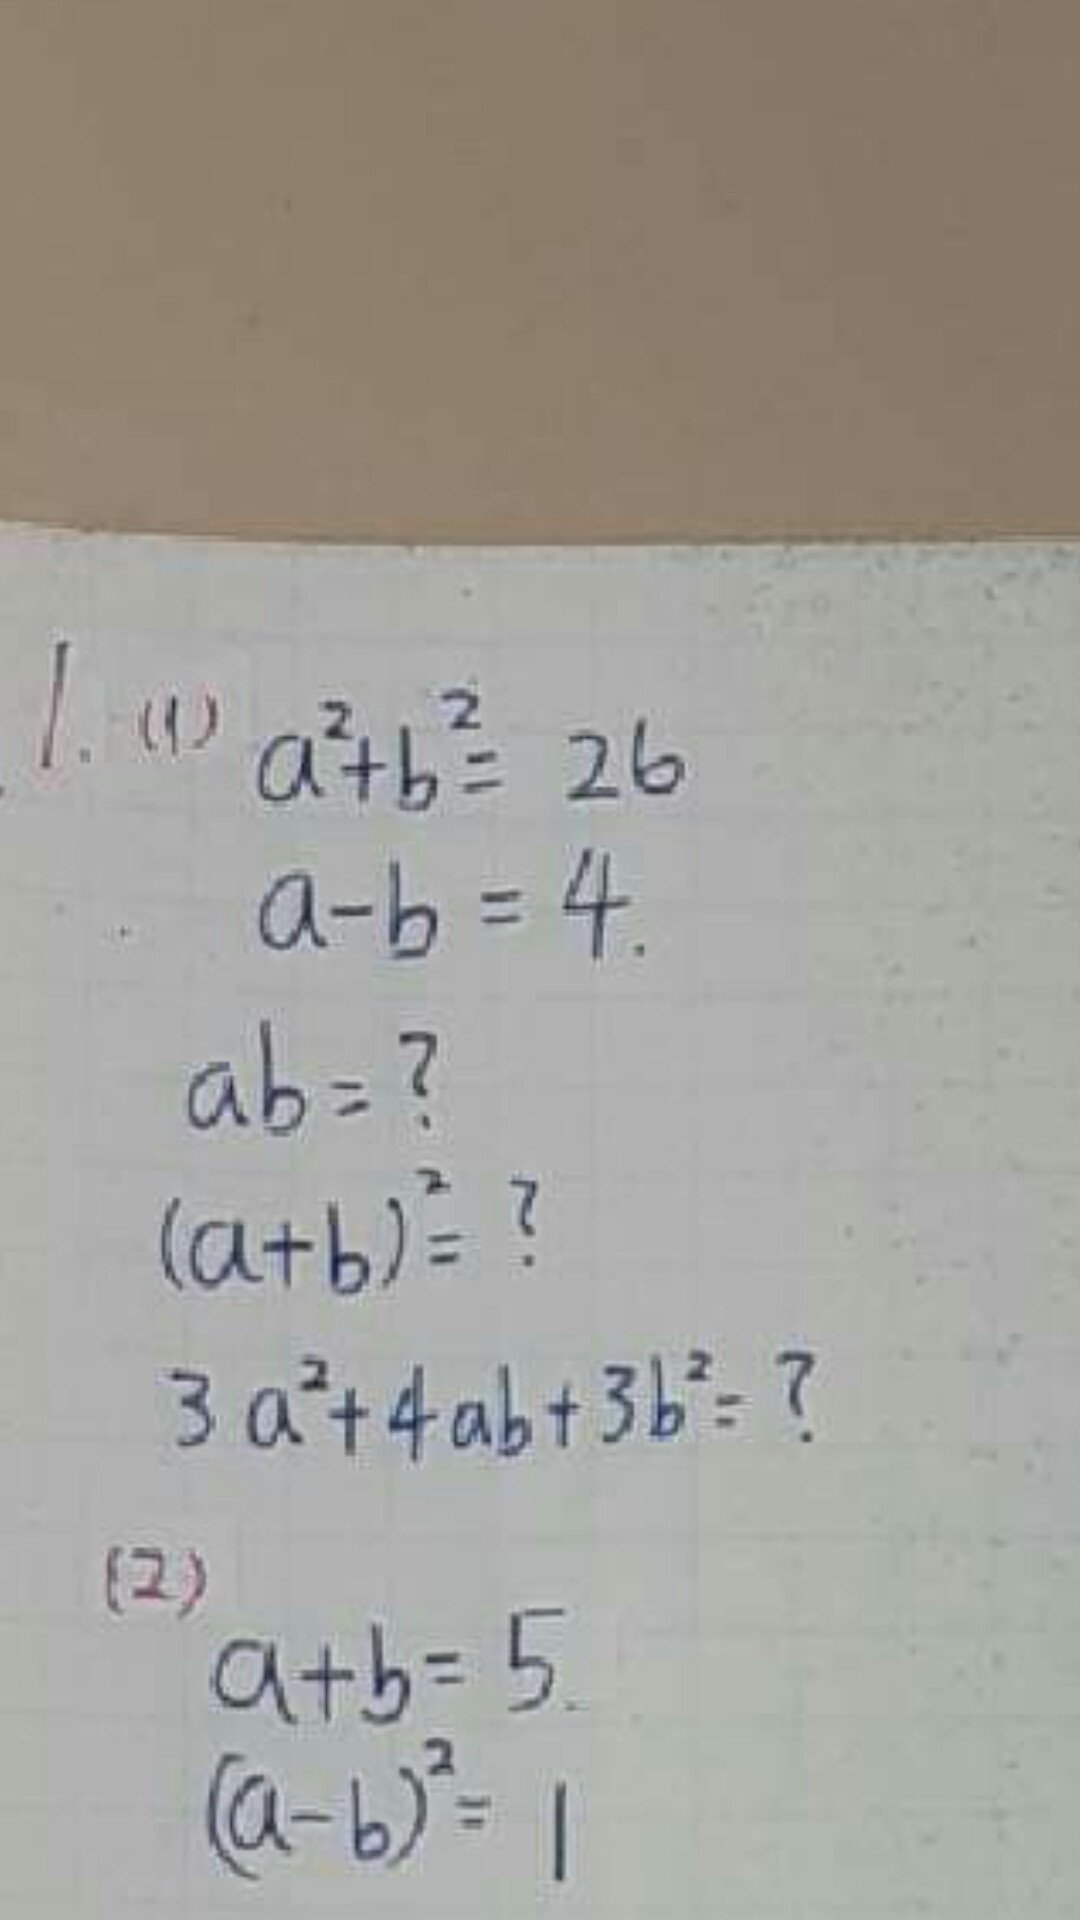 1. (1) a²+b²= 26
a-b = 4.
ab = ?
(a+b)²= ?
3a²+4ab+3b²= ?
(2)
a+b= 5.
(a-b)²= 1